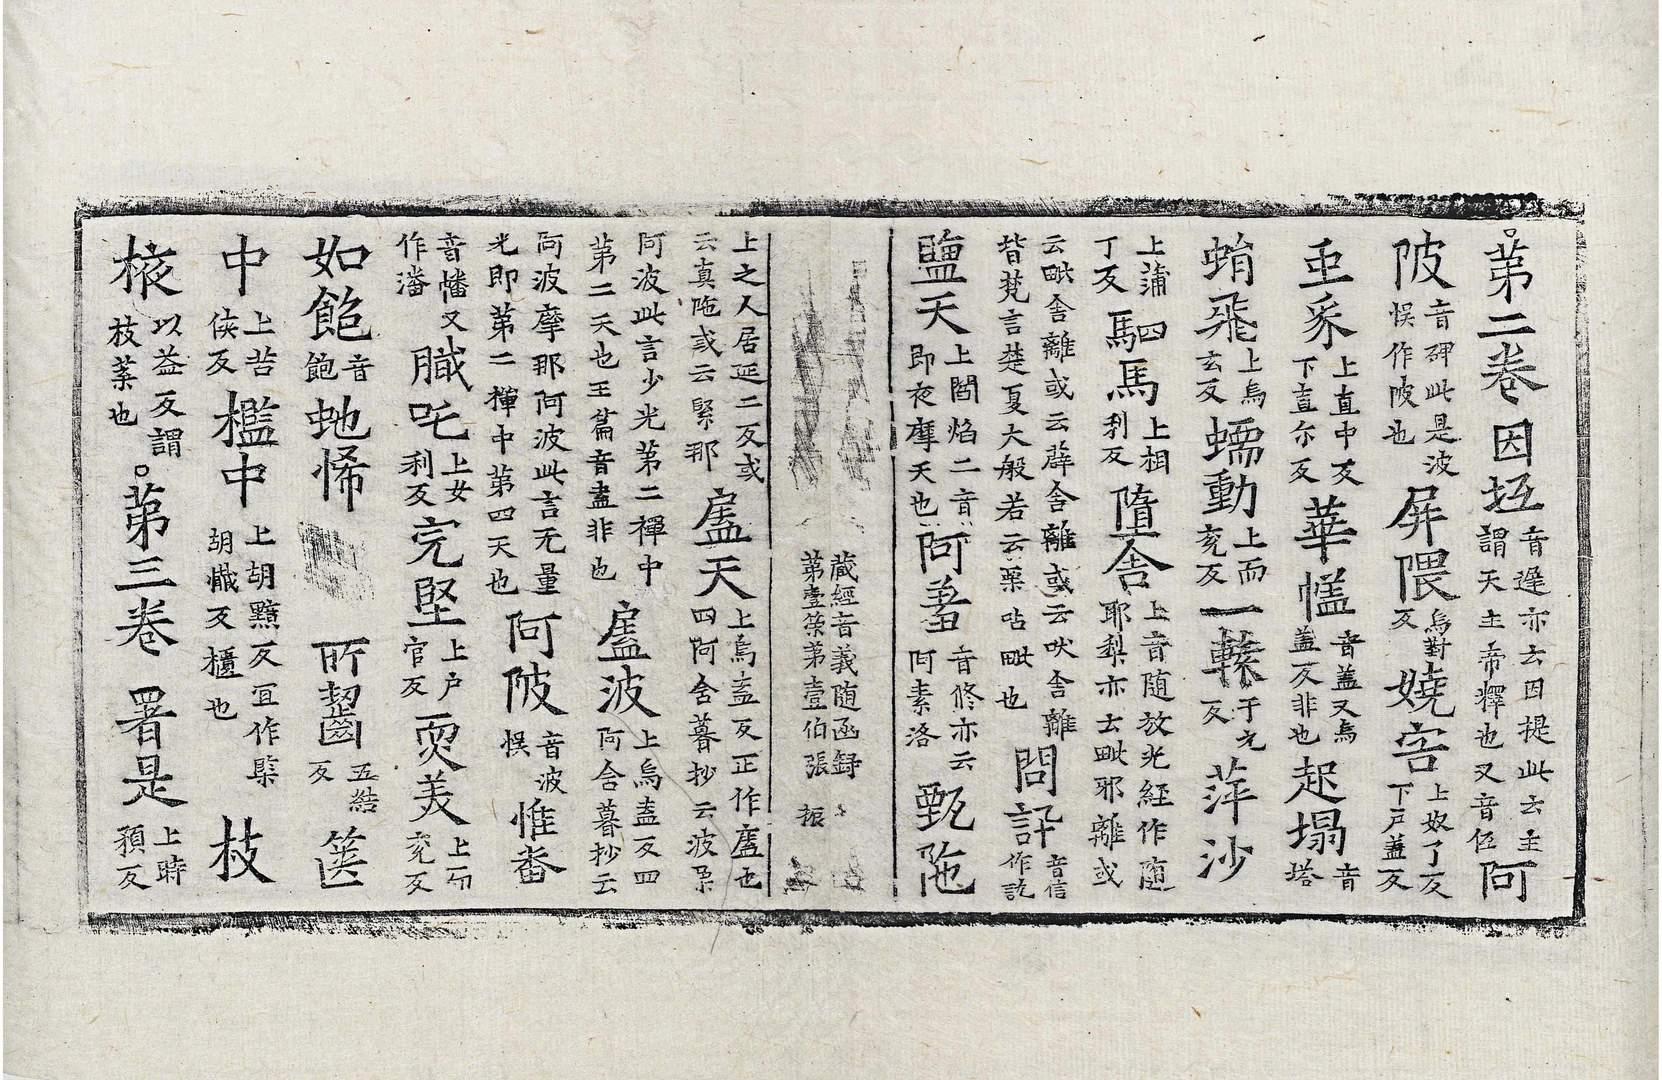 第二卷 因坻 音遲亦云因提此云主謂天主帝釋也又音伍 阿
陂 音碑此是波悮作陂也 屏隈 烏對反 嬈害 上奴了反下戶蓋反
䖝豸 上直中反下直尒反 華㯼 音蓋又烏蓋反非也 起塌 音塔
蜎飛 上烏玄反 蠕動 上而兖反 一䡺 于元反 萍沙
上蒲丁反 駟馬 上相利反 墮舎 上音随放光經作随耶梨亦云毗耶離或
云毗舎離或云薜舎離或云吠舎離皆梵言楚夏大般若云栗呫毗也 問訊 音信作訖
鹽天 上閻焰二音即夜摩天也 阿蓄 音修亦云阿素洛 甄陁
藏經音義随函録
第壹第壹伯張 振
上之人居延二反或云真陁或云緊那 㢚天 上烏盍反正作廅也四阿含暮抄云波栗
阿波此言少光第二禪中第二天也玉篇音盍非也 㢚波 上烏盍反四阿含暮抄云
阿波摩那阿波此言无量光即第二禪中第四天也 阿陂 音波悮 惟番
音幡又作潘 膱吒 上女利反 完堅 上戶官反 耎美 上而兖反
如飽 音飽 虵悕 所齧 五結反 篋
中 上苦侠反 檻中 上胡黤反冝作㯺胡懴反櫃也 枝
棭 以益反謂枝葉也 第三卷 署是 上時預反